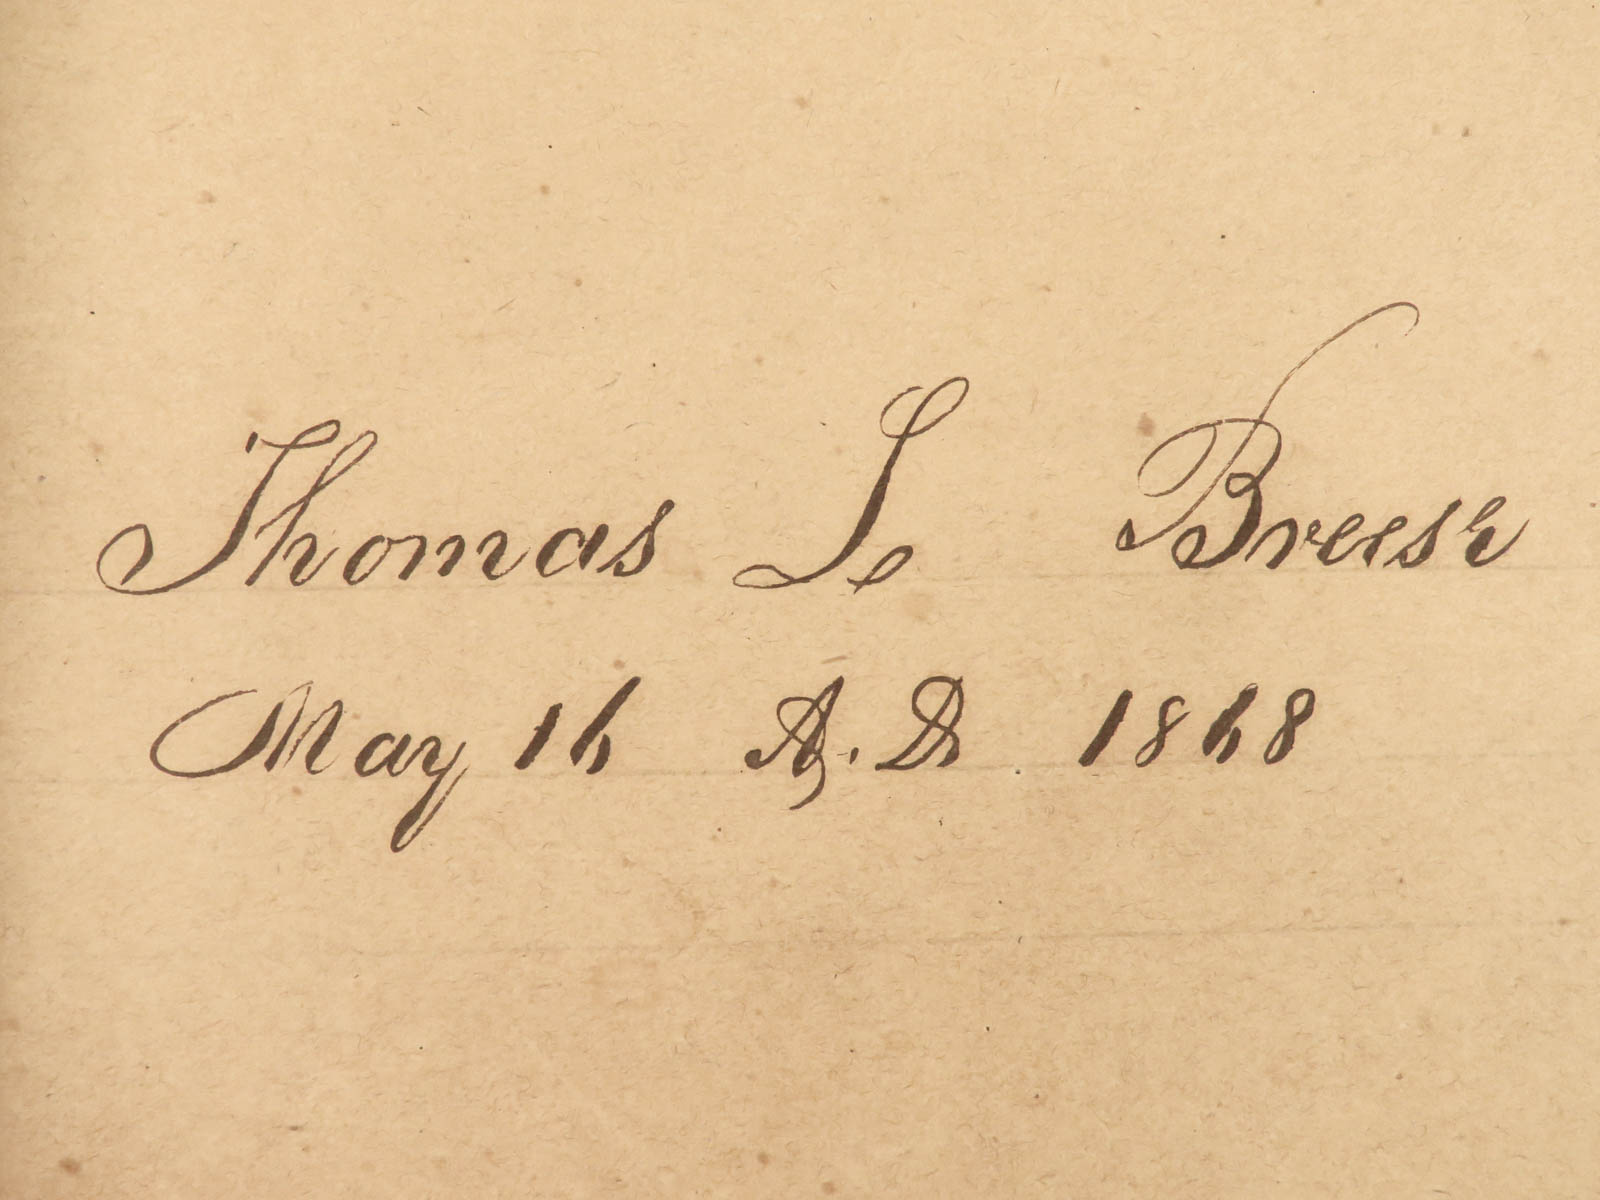 Thomas L Breese
May 16 A.D. 1868